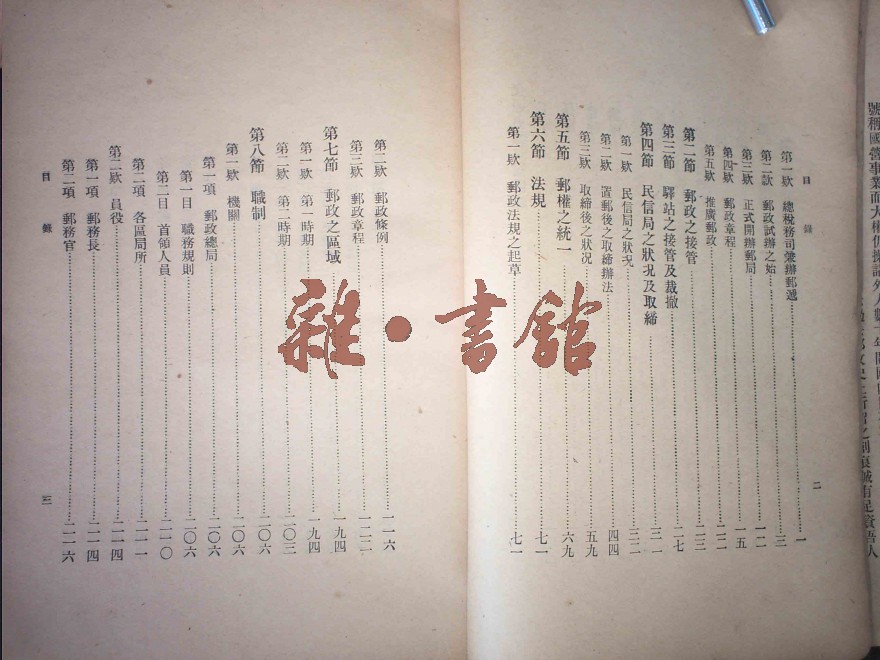 目錄
第一欵 總稅務司兼辦郵遞……一
第二欵 郵政試辦之始……三
第三欵 正式開辦郵局……一二
第四欵 郵政章程……一五
第五欵 推廣郵政……二二
第二節 郵政之接管……二三
第三節 驛站之接管及裁撤……二七
第四節 民信局之狀况及取締……三一
第一欵 民信局之狀况……三二
第二欵 置郵後之取締辦法……四四
第三欵 取締後之狀况……五九
第五節 郵權之統一……六九
第六節 法規……七一
第一欵 郵政法規之起草……七一
二
第二欵 郵政條例……一一六
第三欵 郵政章程……一二二
第七節 郵政之區域……一九四
第一欵 第一時期……一九四
第二欵 第二時期……二〇三
第八節 職制……二〇六
第一欵 機關……二〇六
第一項 郵政總局……二〇六
第一目 職務規則……二〇六
第二目 首領人員……二一〇
第二項 各區局所……二一一
第二欵 員役……二一四
第一項 郵務長……二一四
第二項 郵務官……二一六
目錄
三
雜·書館